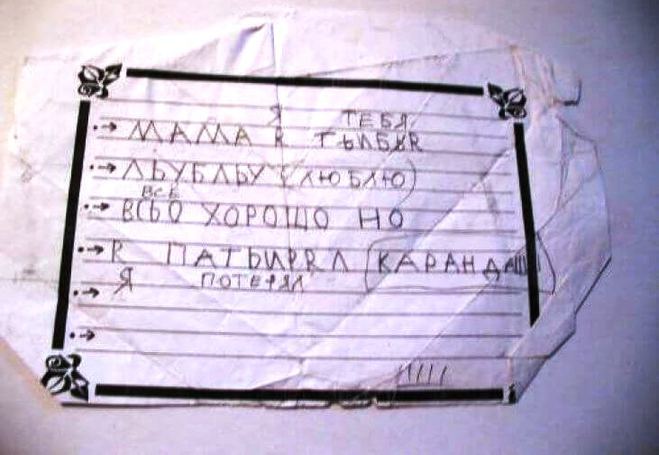 Я ТЕБЯ
МАМА R ТЬИБЯR
ЛЬУБЛЬУ (ЛЮБЛЮ)
ВСЁ
ВСЬО ХОРОШО НО
R ПАТЬИРRЛ КАРАНДАШ
Я ПОТЕРЯЛ